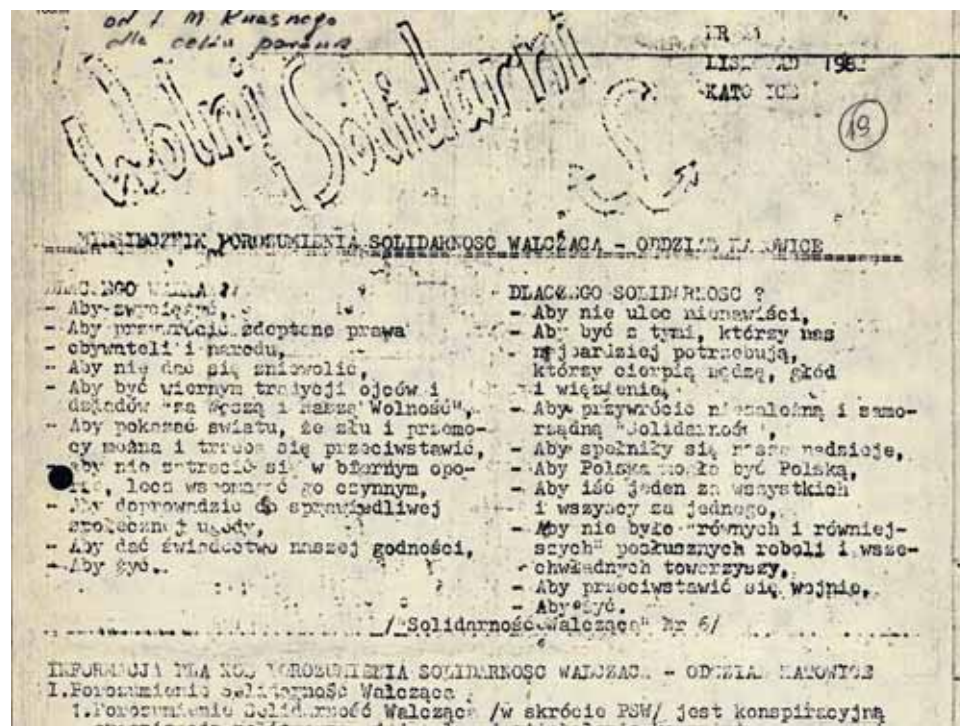 od
dla celów
Wolni i Solidarni
NR
LISTOPAD 198
KATOWICE
19
MIESIĘCZNIK POROZUMIENIA SOLIDARNOSC WALCZĄCA - ODDZIAŁ KATOWICE
DLACZEGO WALKA ?
- Aby zwyciężyć,
- Aby przywrócić zdeptane prawa
- obywateli i narodu,
- Aby nie dać się zniewolić,
- Aby być wiernym tradycji ojców i
dziadów "za Waszą i Naszą Wolność",
- Aby pokazać światu, że złu i przemo-
cy można i trzeba się przeciwstawić,
- Aby nie zatracić się w biernym opo-
rze, lecz wspomagać go czynnym,
- Aby doprowadzić do sprawiedliwej
społecznej ugody,
- Aby dać świadectwo naszej godności,
- Aby żyć.
DLACZEGO SOLIDARNOSC ?
- Aby nie ulec nienawiści,
- Aby być z tymi, którzy nas
- najbardziej potrzebują,
którzy cierpią nędzę, głód
i więzienie,
- Aby przywrócić niezależną i samo-
rządną "Solidarność",
- Aby spełniły się nasze nadzieje,
- Aby Polska mogła być Polską,
- Aby iść jeden za wszystkich
i wszyscy za jednego,
- Aby nie było "równych i równiej-
szych" posłusznych roboli i wsze-
chwładnych towarzyszy,
- Aby przeciwstawić się wojnie,
- Aby żyć.
/"Solidarność Walcząca" Nr 6/
INFORMACJA DLA KÓŁ POROZUMIENIA SOLIDARNOSC WALCZĄCA - ODDZIAŁ KATOWICE
I.Porozumienie Solidarność Walcząca
1.Porozumienie Solidarność Walcząca /w skrócie PSW/ jest konspiracyjną